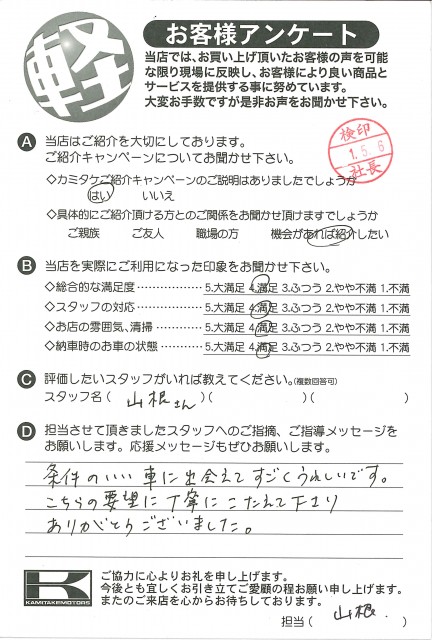 軽
お客様アンケート
当店では、お買い上げ頂いたお客様の声を可能
な限り現場に反映し、お客様により良い商品と
サービスを提供する事に努めています。
大変お手数ですが是非お声をお聞かせ下さい。
検印
1.5.6
社長
A 当店はご紹介を大切にしております。
ご紹介キャンペーンについてお聞かせ下さい。
◇カミタケご紹介キャンペーンのご説明はありましたでしょうか
はい いいえ
◇具体的にご紹介頂ける方とのご関係をお聞かせ頂けますでしょうか
ご親族 ご友人 職場の方 機会があれば紹介したい
B 当店を実際にご利用になった印象をお聞かせ下さい。
◇総合的な満足度 5.大満足 4.満足 3.ふつう 2.やや不満 1.不満
◇スタッフの対応 5.大満足 4.満足 3.ふつう 2.やや不満 1.不満
◇お店の雰囲気、清掃 5.大満足 4.満足 3.ふつう 2.やや不満 1.不満
◇納車時のお車の状態 5.大満足 4.満足 3.ふつう 2.やや不満 1.不満
C 評価したいスタッフがいれば教えてください。(複数回答可)
スタッフ名 ( 山根さん )( )( )
D 担当させて頂きましたスタッフへのご指摘、ご指導メッセージを
お願いします。応援メッセージもぜひお願いします。
条件のいい車に出会えてすごくうれしいです。
こちらの要望に丁寧にこたえて下さり
ありがとうございました。
K
KAMITAKEMOTORS
ご協力に心よりお礼を申し上げます。
今後とも宜しくお引き立てご愛顧の程お願い申し上げます。
またのご来店を心からお待ちしております。
担当 ( 山根. )